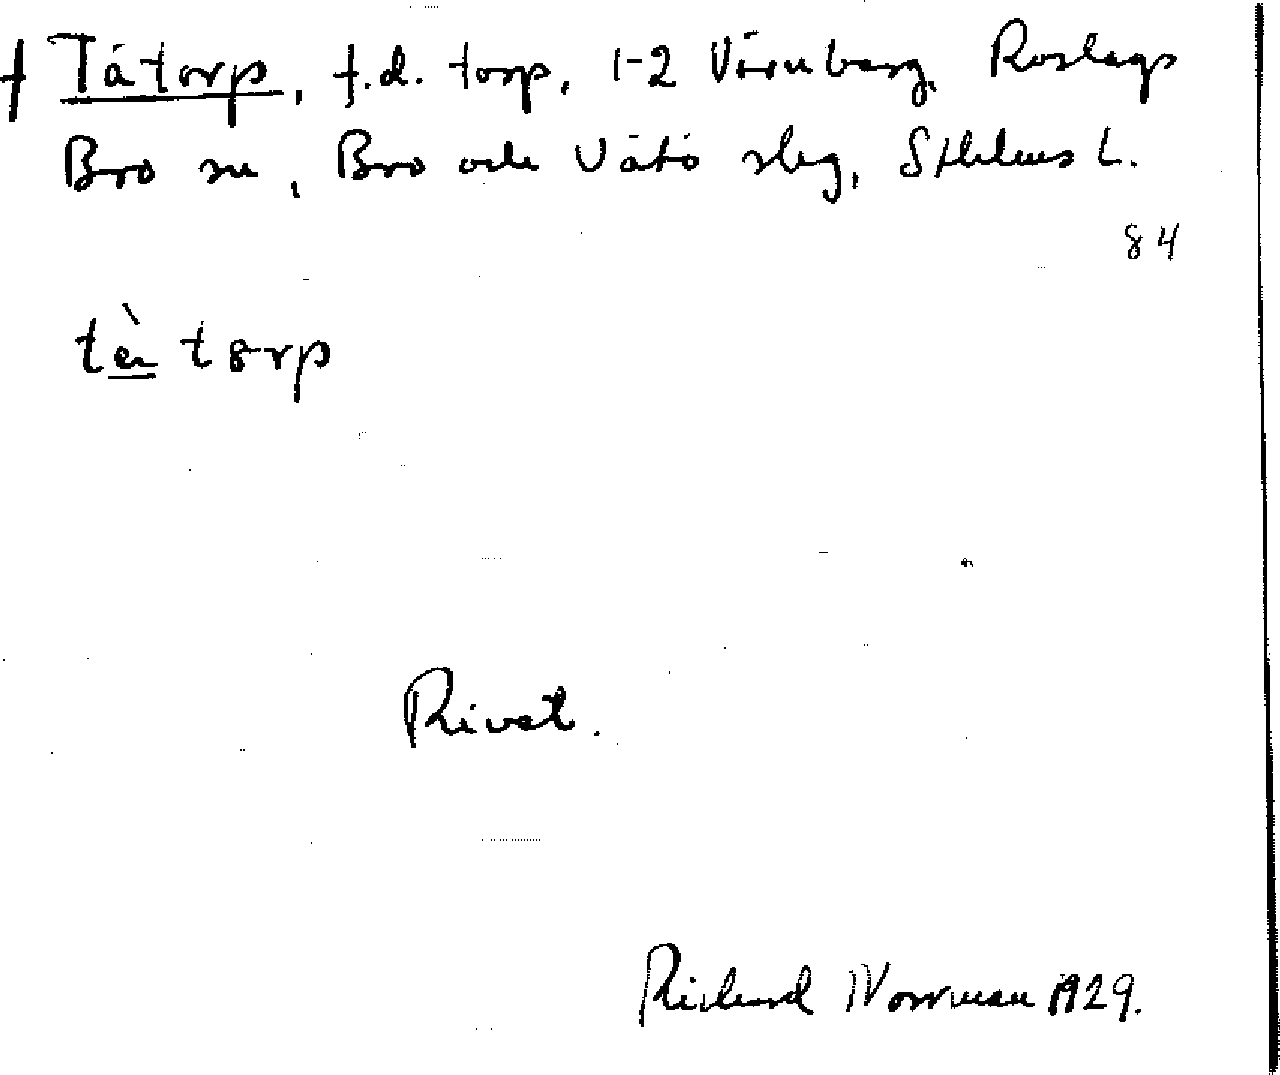 † Tåtorp, f.d. torp, 1-2 Vrenberg, Roslags
Bro sn, Bro och Vätö slg, Sthlms L.
84
tètorp
Rivet.
Richard Norrman 1929.